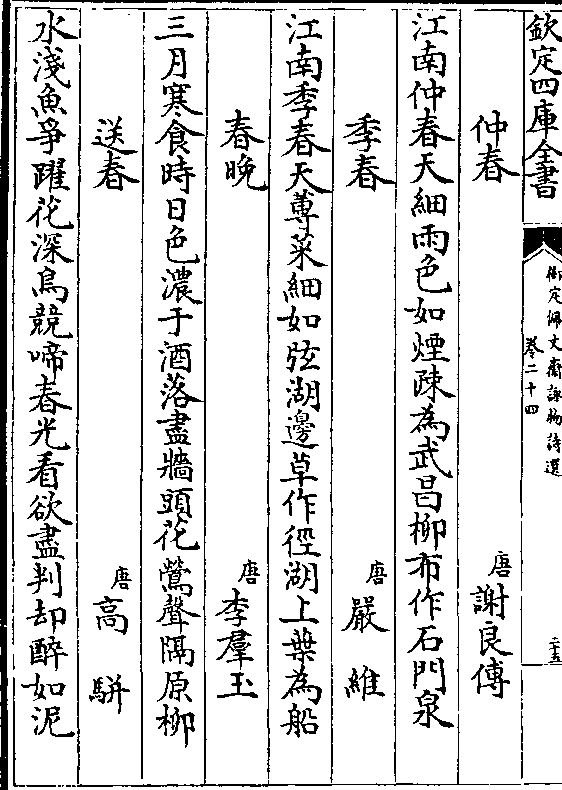 欽定四庫全書
御定佩文齋詠物詩選
卷二十四
二十五
仲春 唐 謝良傅
江南仲春天細雨色如煙疎為武昌柳布作石門泉
季春 唐 嚴維
江南季春天蓴菜細如弦湖邊草作徑湖上葉為船
春晚 唐 李羣玉
三月寒食時日色濃于酒落盡牆頭花鶯聲隔原柳
送春 唐 高駢
水淺魚爭躍花深鳥競啼春光看欲盡判却醉如泥